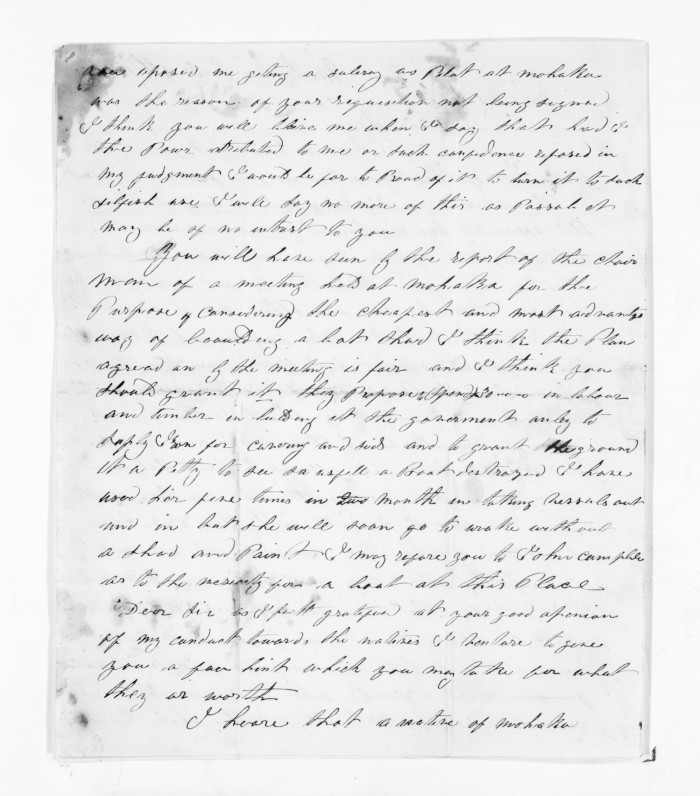 you aposed me geting a salirey as Pilat at mohaka
was the reason of your requisition not being signed
I think you will believe me when I say that had I
the Powr atributed to me or such confidence reposed in
my judgment I would be far to Proud of it to turn it to such
silfish use I will say no more of this as Passabl it
may be of no intrest to you
You will have seen by the report of the chair
man of a meeting held at mohaka for the
Purpose of Considering the cheapest and most advantge
way of boaulding a bot shad I think the Plan
agread an by the meeting is fair and I think you
should grant it they Propose to Spend in labour
and timber in buldeng it the goverment anley to
suply Iron for carvring and sids and to grant the ground
it a Pitty to see so usfell a Boat destroyed I have
used hir five times in two month in taking vessals out
and in but she will soon go to wrake without
a shad and Paint I may refare you to John camplele
as to the nesesity for a boat at this Place
Dear Sir as I felt grateful at your good openion
of my conduct towards the natives I venture to give
you a faw hint which you may take for what
they ar worth
I heare that a native of mohaka